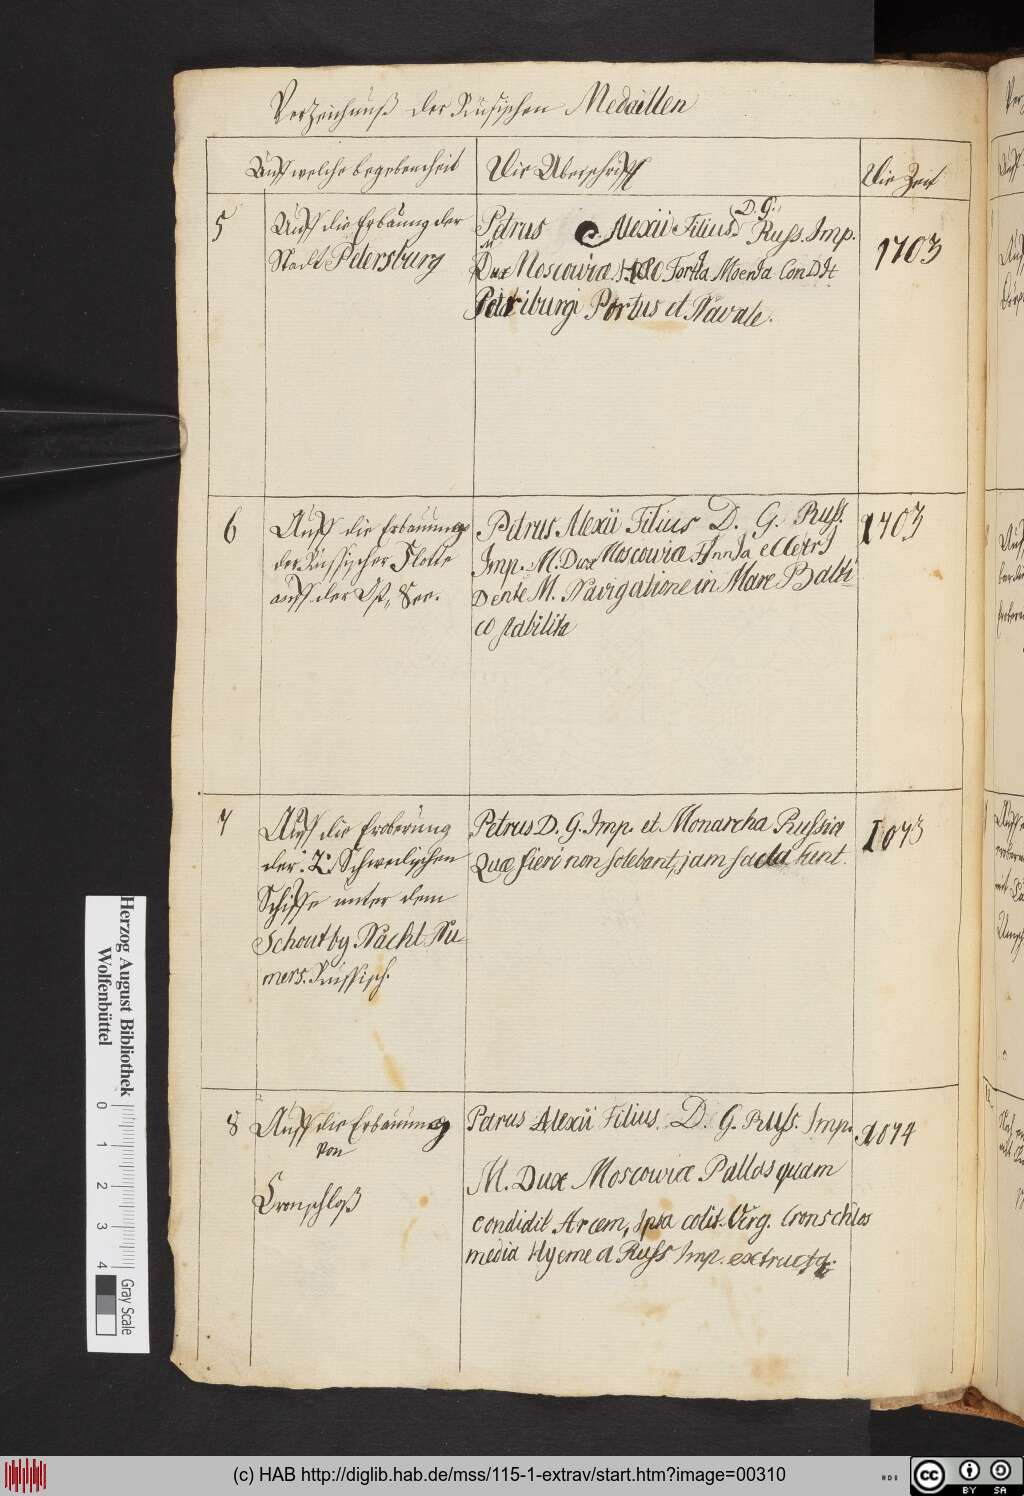 Verzeichnuß der Rusischen Medaillen
Auff welche begebenheit
Die Uberschrifft
Die Zeit
5
Auff die Erbauung der
Stadt Petersburg
Petrus Alexii Filius. D. G. Russ. Imp.
M Dux Moscowiæ Moenia
Petriburgi Portus et Navale.
1703
6
Auff die Erbauung
der Russischer Flotte
auff der Ost, See.
Petrus Alexii Filius D. G. Russ.
Imp. M. Dux Moscowiæ
Dente M. Navigatione in Mare Balti
co stabilita
1703
7
Auff die Eroberung
der. 2. Schwedischen
Schiffe unter dem
Schoutby Nacht Nu
mers. Russisch.
Petrus D. G. Imp. et Monarcha Russiæ
Quæ fieri non solebant, jam facta sunt.
1073
8
Auff die Erbauung
Von
Cronschloß
Petrus Alexii Filius. D. G. Russ. Imp.
M. Dux Moscowiæ Pallas quam
condidit Arcem, Ipsa colit. Virg. Cronschlos
media Hyeme a Russ Imp. extructa.
1074
Herzog August Bibliothek
Wolfenbüttel
0 1 2 3 4
Gray Scale
(c) HAB http://diglib.hab.de/mss/115-1-extrav/start.htm?image=00310
cc BY SA